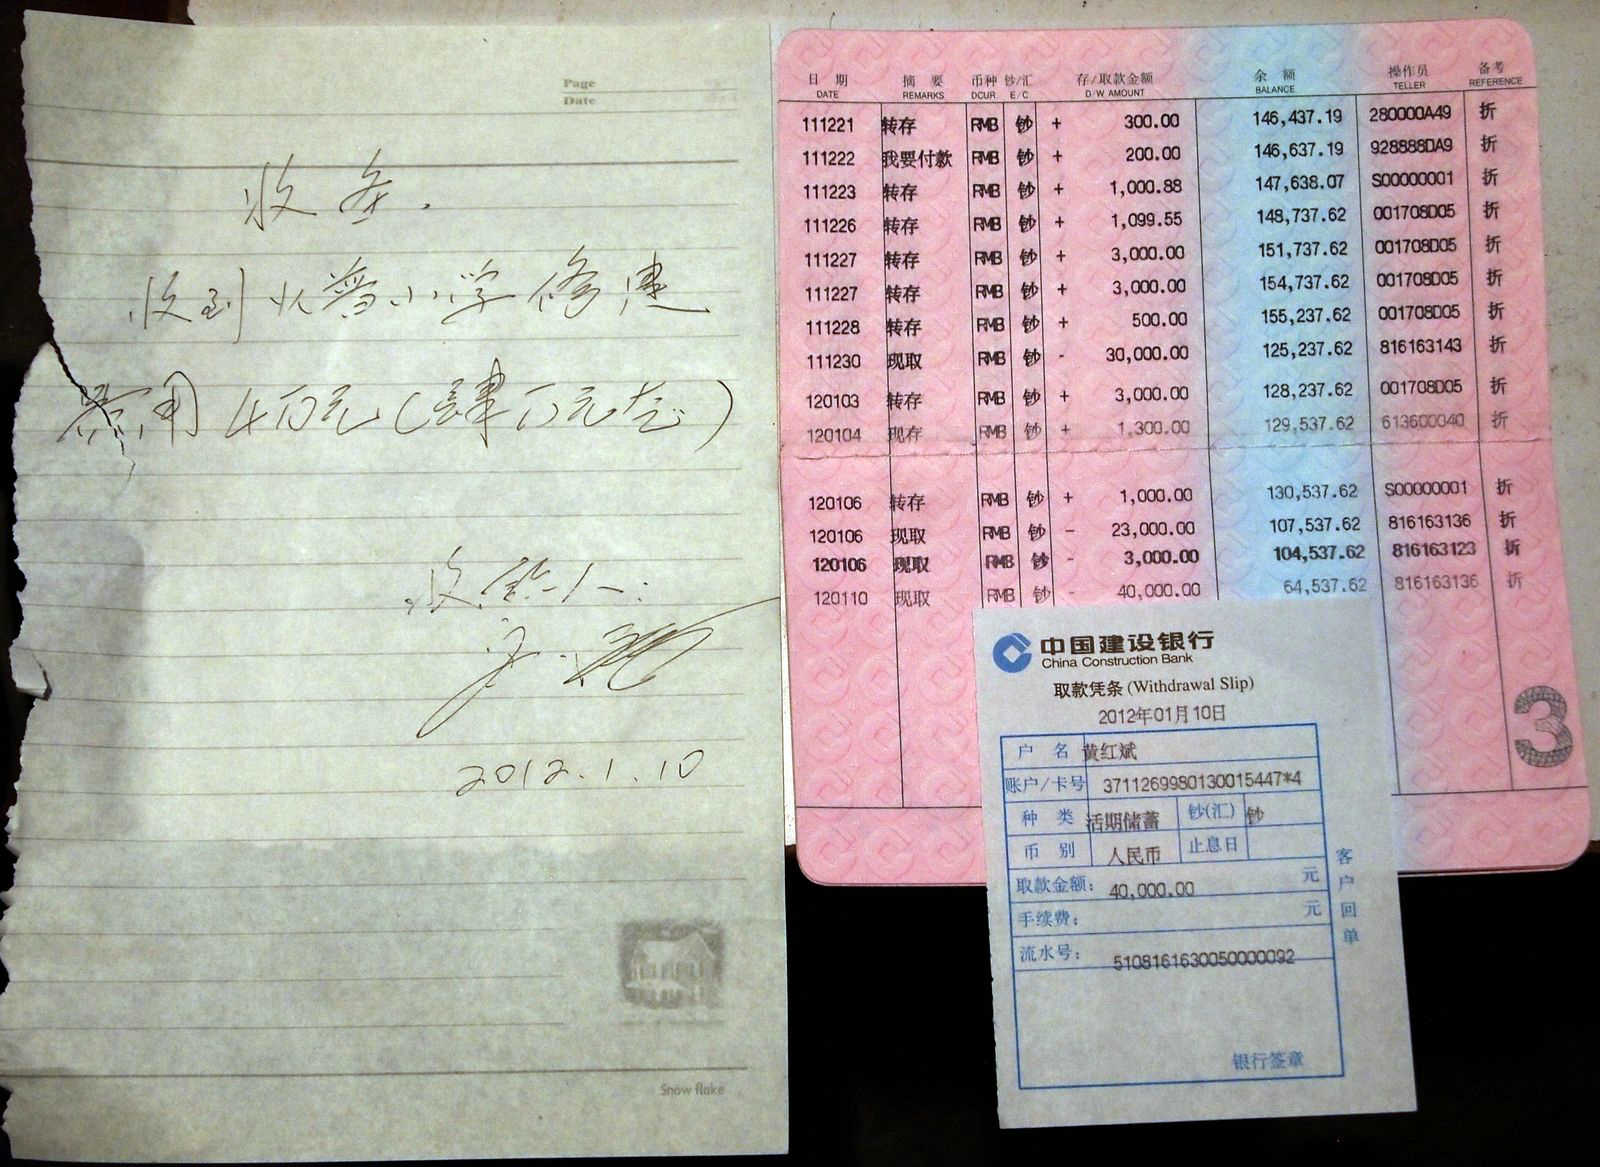 Page
Date
收条.
收到火普小学修建
费用4万元(肆万元整)
收款人:
2012.1.10
Snow flake
日期 摘要 币种 钞/汇 存/取款金额 余额 操作员 备考
DATE REMARKS DCUR E/C D/W AMOUNT BALANCE TELLER REFERENCE
111221 转存 RMB 钞 + 300.00 146,437.19 280000A49 折
111222 我要付款 RMB 钞 + 200.00 146,637.19 928888DA9 折
111223 转存 RMB 钞 + 1,000.88 147,638.07 S00000001 折
111226 转存 RMB 钞 + 1,099.55 148,737.62 001708D05 折
111227 转存 RMB 钞 + 3,000.00 151,737.62 001708D05 折
111227 转存 RMB 钞 + 3,000.00 154,737.62 001708D05 折
111228 转存 RMB 钞 + 500.00 155,237.62 001708D05 折
111230 现取 RMB 钞 - 30,000.00 125,237.62 816163143 折
120103 转存 RMB 钞 + 3,000.00 128,237.62 001708D05 折
120104 现存 RMB 钞 + 1,300.00 129,537.62 613600040 折
120106 转存 RMB 钞 + 1,000.00 130,537.62 S00000001 折
120106 现取 RMB 钞 - 23,000.00 107,537.62 816163136 折
120106 现取 RMB 钞 - 3,000.00 104,537.62 816163123 折
120110 现取 RMB 钞 - 40,000.00 64,537.62 816163136 折
3
中国建设银行
China Construction Bank
取款凭条 (Withdrawal Slip)
2012年01月10日
户名 黄红斌
账户/卡号 3711269980130015447*4
种类 活期储蓄 钞(汇) 钞
币别 人民币 止息日
取款金额: 40,000.00 元
手续费: 元
流水号: 5108161630050000092
银行签章
客户回单